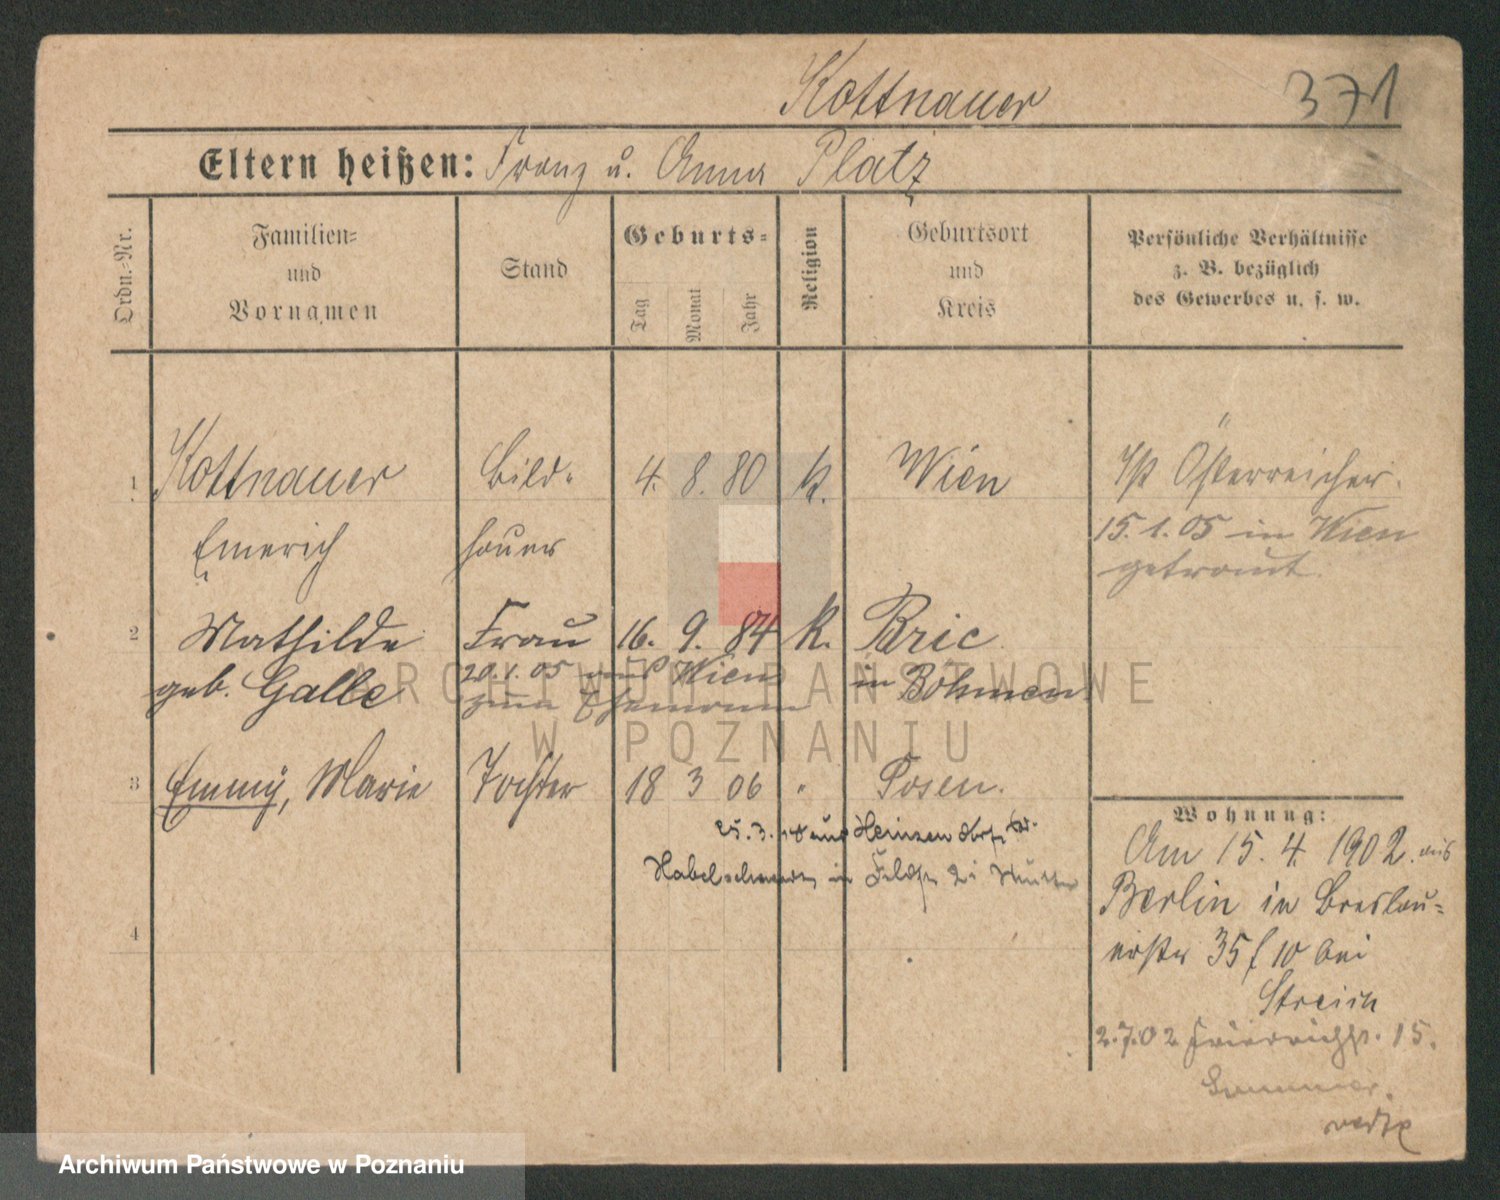 Kottnauer 371
Eltern heißen: Franz u. Anna Platz
Ordn.-Nr.
Familien-
und
Vornamen
Stand
Geburts-
Tag
Monat
Jahr
Religion
Geburtsort
und
Kreis
Persönliche Verhältnisse
z. B. bezüglich
des Gewerbes u. s. w.
1 Kottnauer Bild- 4. 8. 80 k. Wien Ist Österreicher.
Emerich hauer 15.1.05 in Wien
getraut.
2 Mathilde Frau 16. 9. 84 k. Bric
geb. Galle 20.1.05 aus Wien in Böhmen
zum Ehemann
3 Emmy, Marie Tochter 18 3 06 " Posen.
25.3. aus Heinzendorf Kr.
Habelschwerdt in
4
Wohnung:
Am 15. 4. 1902. aus
Berlin in Breslau-
erstr 35 f 10 bei
Streich
2.7.02 Friedrichstr. 15.
verte
ARCHIWUM PAŃSTWOWE
W POZNANIU
Archiwum Państwowe w Poznaniu